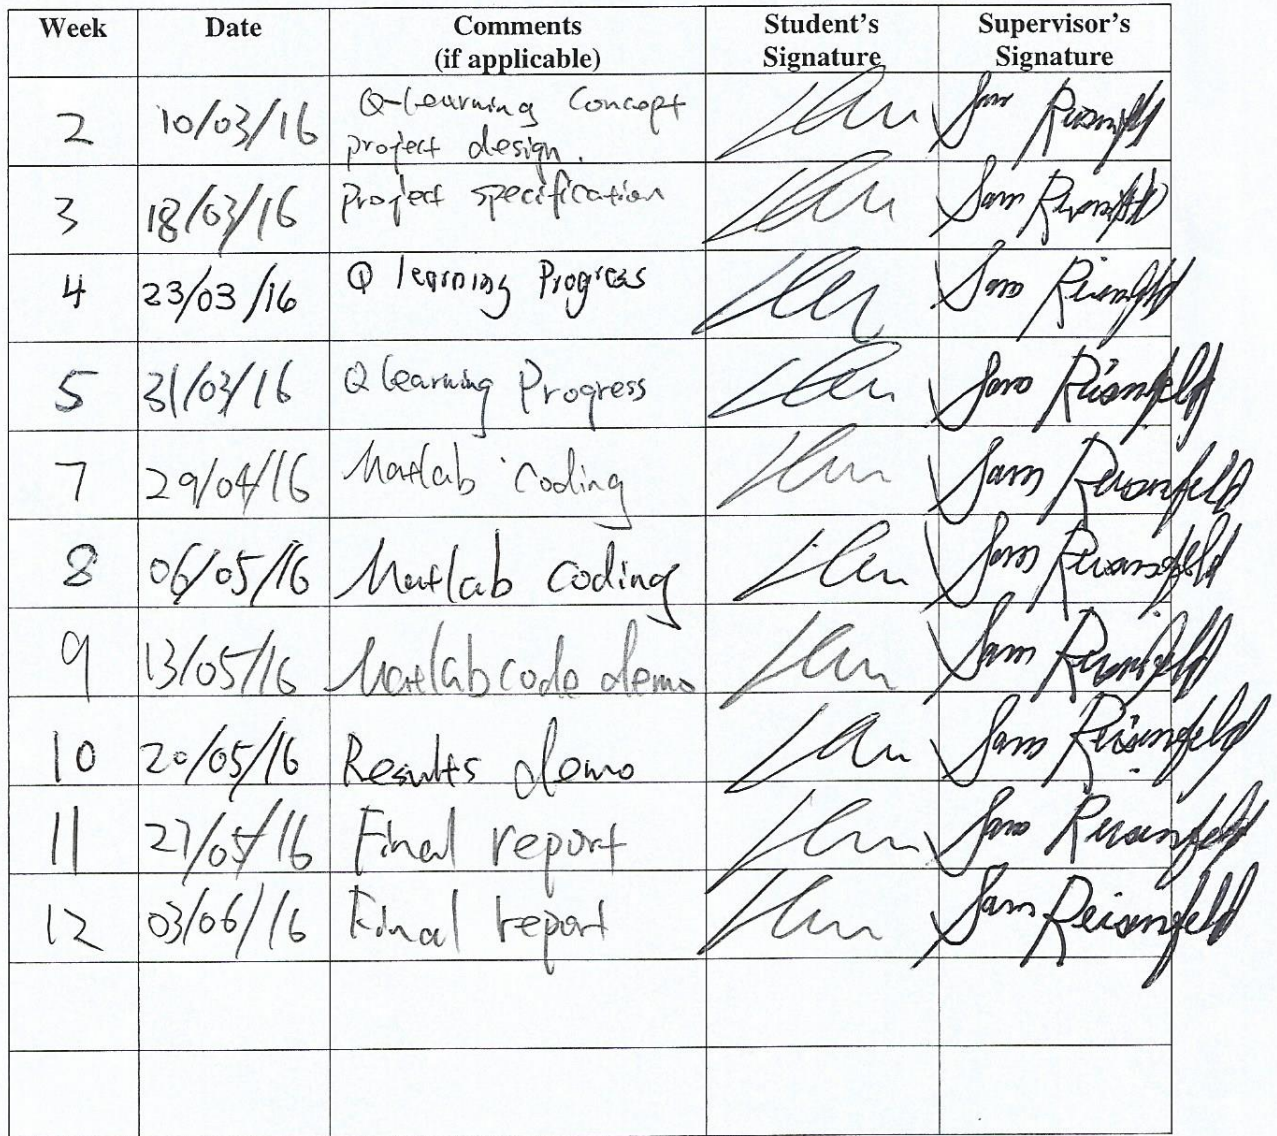 Week Date Comments Student's Supervisor's
(if applicable) Signature Signature
2 10/03/16 Q-learning Concept
project design. Sam Reisenfeld
3 18/03/16 Project specification Sam Reisenfeld
4 23/03/16 Q learning Progress Sam Reisenfeld
5 31/03/16 Q learning Progress Sam Reisenfeld
7 29/04/16 Matlab coding Sam Reisenfeld
8 06/05/16 Matlab coding Sam Reisenfeld
9 13/05/16 Matlab code demo Sam Reisenfeld
10 20/05/16 Results demo Sam Reisenfeld
11 27/05/16 Final report Sam Reisenfeld
12 03/06/16 Final report Sam Reisenfeld